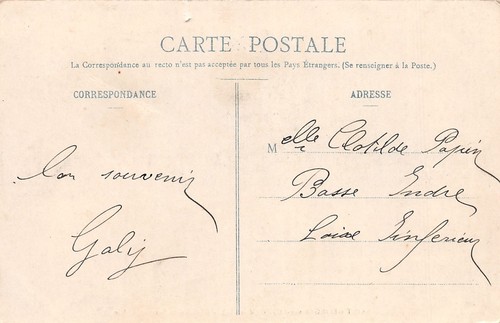 CARTE POSTALE
La Correspondance au recto n'est pas acceptée par tous les Pays Étrangers. (Se renseigner à la Poste.)
CORRESPONDANCE
bon souvenir
Galij
ADRESSE
Melle Clotilde Papin
Basse Indre
Loire Inferieur